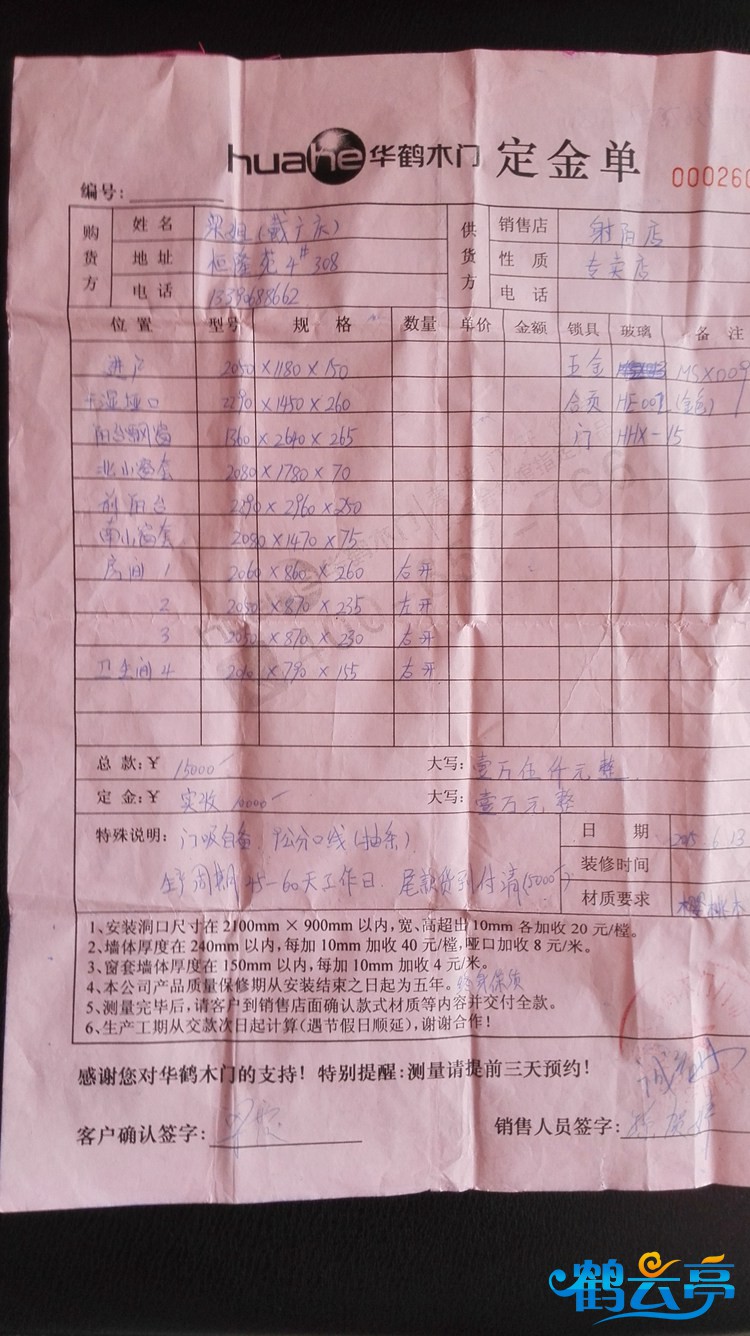 huahe 华鹤木门 定金单
编号: 000260
购货方 姓名 梁姐(戴广庆) 供货方 销售店 射阳店
地址 恒隆苑4#308 性质 专卖店
电话 13390688662 电话
位置 型号 规格 数量 单价 金额 锁具 玻璃 备注
进户 2050×1180×150 五金 MSX009
干湿垭口 2290×1450×260 合页 HE001 (金色)
阳台飘窗 1360×2640×265 门 HHX-15
北小窗套 2080×1780×70
前阳台 2290×2960×250
南小窗套 2080×1470×75
房间1 2060×860×260 右开
2 2050×870×235 左开
3 2050×870×230 右开
卫生间4 2060×790×155 右开
总款:¥ 15000 大写: 壹万伍仟元整
定金:¥ 实收 10000 大写: 壹万元整
特殊说明: 门吸自备. 线(抽条) 日期 2015.6.13
生产周期45-60天工作日. 尾款货到付清(5000) 装修时间
材质要求 樱桃木
1、安装洞口尺寸在2100mm×900mm以内,宽、高超出10mm各加收20元/樘。
2、墙体厚度在240mm以内,每加10mm加收40元/樘,哑口加收8元/米。
3、窗套墙体厚度在150mm以内,每加10mm加收4元/米。
4、本公司产品质量保修期从安装结束之日起为五年。终身保质
5、测量完毕后,请客户到销售店面确认款式材质等内容并交付全款。
6、生产工期从交款次日起计算(遇节假日顺延),谢谢合作!
感谢您对华鹤木门的支持! 特别提醒:测量请提前三天预约!
客户确认签字: 销售人员签字:
鹤云亭